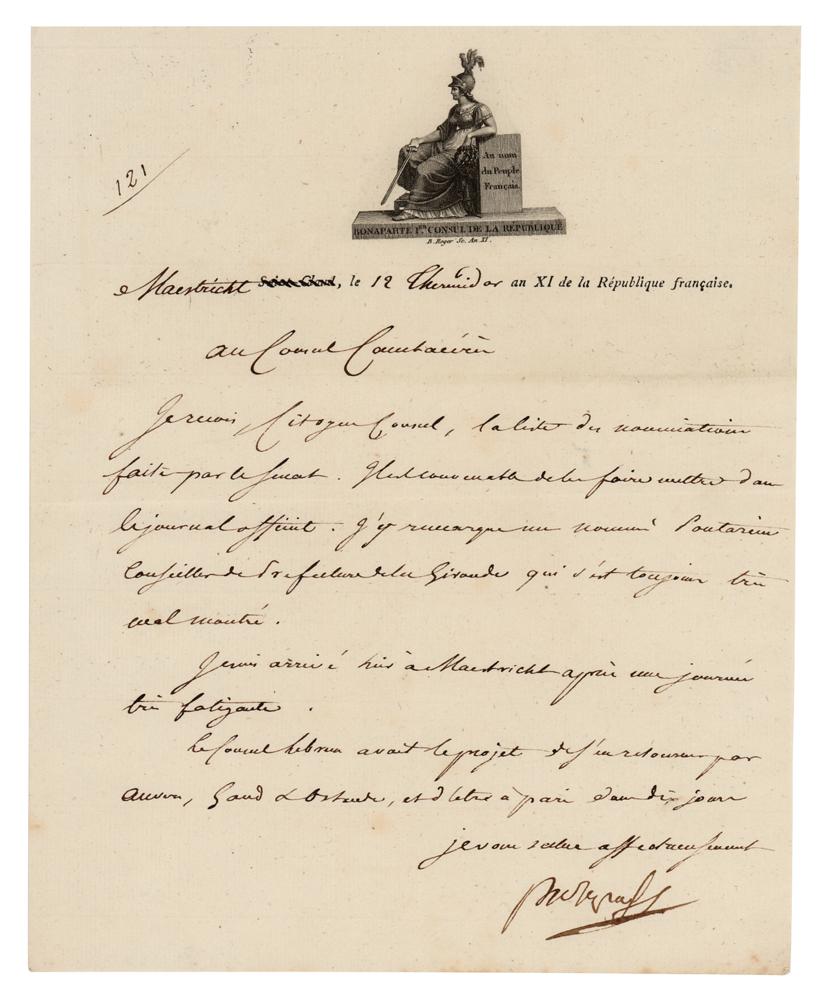 121
Au nom
du Peuple
Français.
BONAPARTE 1er CONSUL DE LA RÉPUBLIQUE
B. Roger Sc. An XI.
Maestricht Saint-Cloud, le 12 Thermidor an XI de la République française.
au Consul Cambacérès
Je reçois, Citoyen Consul, la liste des nominations
faite par le Senat. Il est convenable de les faire mettre dans
le journal officiel. J'y remarque un nommé
Conseiller de Prefecture de la Gironde qui s'est toujours très
mal montré.
Je suis arrivé hier à Maestricht après une journée
très fatigante.
le Consul Lebrun avait le projet de s'en retourner par
Anvers, Gand & Ostende, et d'être à paris dans dix jours
je vous salue affectueusement